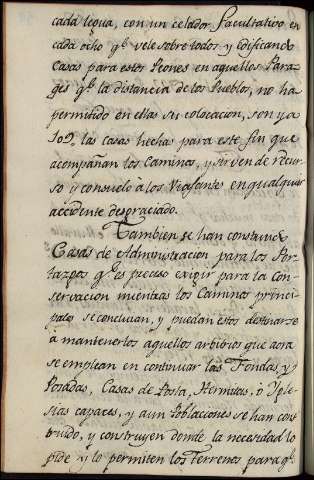 cada legua, con un celador facultativo en
cada ocho qe. vele sobre todos y edificando
Casas para estos Peones en aquellos Para-
ges qe. la distancia de los Pueblos, no ha
permitido en ellas su colocacion, son ya
109. las casas hechas para este fin que
acompañan los Caminos, y sirven de recur-
so y consuelo à los Viajantes en qualquier
accidente desgraciado.
Tambien se han construido
Casas de Administracion para los Por-
tazgos qe. es preciso exigir para la con-
servacion mientras los Caminos princi-
pales se concluian, y puedan estos destinarse
à mantenerlos aquellos arbitrios que aora
se emplean en continuar las Fondas, y
Posadas, Casas de Posta, Hermitas, ò Ygle-
sias capaces, y aun Poblaciones se han cons-
truido, y construyen donde la necesidad lo
pide y lo permiten los Terrenos para qe.